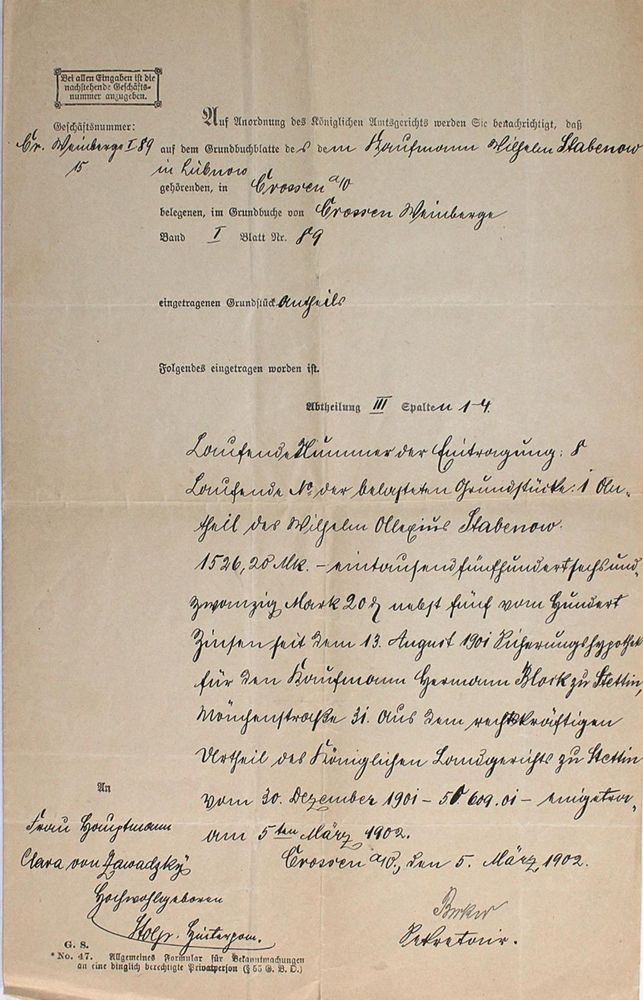 Bei allen Eingaben ist die
nachstehende Geschäfts-
nummer anzugeben.
Geschäftsnummer:
Cr. Weinberge I 89
15
Auf Anordnung des Königlichen Amtsgerichts werden Sie benachrichtigt, daß
auf dem Grundbuchblatte des dem Kaufmann Wilhelm Stabenow
in Lübnow
gehörenden, in Crossen a/O
belegenen, im Grundbuche von Crossen Weinberge
Band I Blatt Nr. 89
eingetragenen Grundstück Antheils
Folgendes eingetragen worden ist.
Abtheilung III Spalten 1-4.
Laufende Nummer der Eintragung: 8
Laufende No. der belasteten Grundstücke: 1 An-
theil des Wilhelm Alexius Stabenow.
1526,20 Mk. – eintausendfünfhundertsechsund-
zwanzig Mark 20 ₰ nebst fünf vom Hundert
Zinsen seit dem 13. August 1901 Sicherungshypothek
für den Kaufmann Hermann Block zu Stettin,
Mönchenstraße 31. Aus dem rechtskräftigen
Urtheil des Königlichen Landgerichts zu Stettin
vom 30. Dezember 1901 – 5 O 609. 01 – eingetra.
am 5ten März 1902.
Crossen a/O., den 5. März 1902.
Sekretair.
An
Frau Hauptmann
Clara von Zawadzky
Hochwohlgeboren
Stolp. Hinterpom.
G. S.
* No. 47. Allgemeines Formular für Bekanntmachungen
an eine dinglich berechtigte Privatperson (§ 55 G. B. O.)